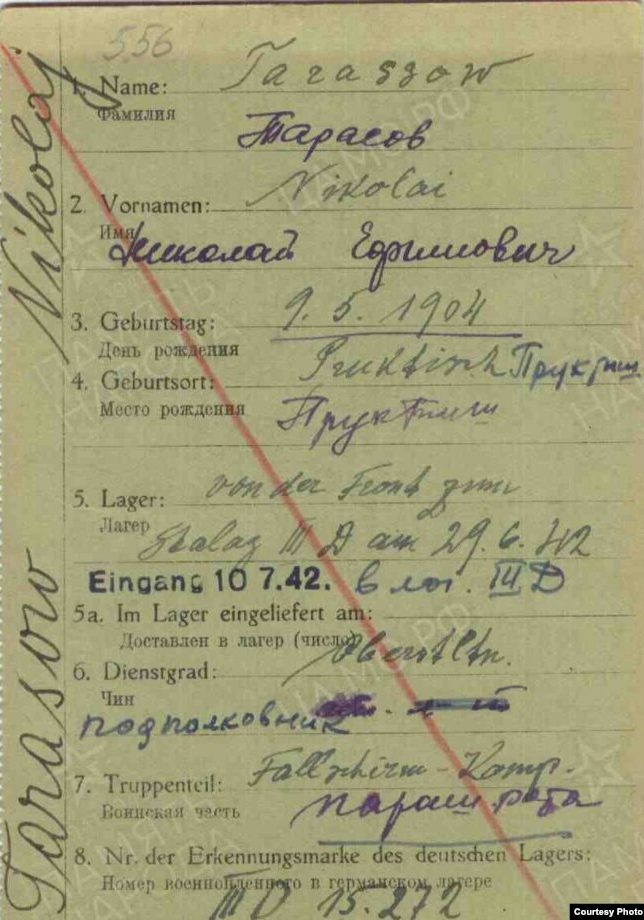 556
1. Name: Taraszow
Фамилия
Тарасов
2. Vornamen: Nikolai
Имя
Николай Ефимович
3. Geburtstag: 9. 5. 1904
День рождения
4. Geburtsort: Pruktisch Пруктиш
Место рождения Пруктиш
5. Lager: von der Front zum
Лагер Stalag III D am 29. 6. 42
Eingang 10 7.42. в лаг. III D
5a. Im Lager eingeliefert am:
Доставлен в лагер (число)
6. Dienstgrad: Oberstltn.
Чин
подполковник
7. Truppenteil: Fallschirm-Komp.
Воинская часть параш. рота
8. Nr. der Erkennungsmarke des deutschen Lagers:
Номер военнопленного в германском лагере
III D 15.272
Tarasow Nikolaj
Courtesy Photo